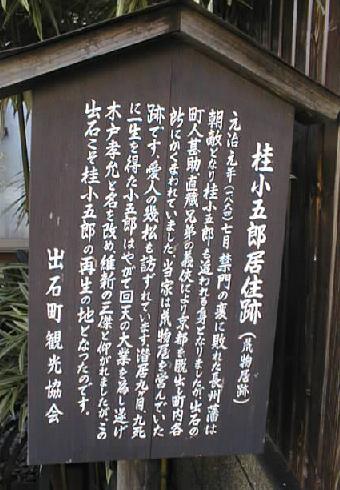 桂小五郎居住跡（荒物屋跡）
元治元年（一八六四）七月 禁門の変に敗れた長州藩は
朝敵となり桂小五郎も追われる身となりましたが、出石の
町人甚助、直蔵兄弟の義侠により京都を脱出し町内各
所にかくまわれていました。当家は荒物屋を営んでいた
跡です。愛人の幾松も訪ずれています。潜居九ヶ月、九死
に一生を得た小五郎はやがて回天の大業を為し遂げ
木戸孝允と名を改め維新の三傑と仰がれましたが、この
出石こそ桂小五郎の再生の地となったのです。
出石町観光協会